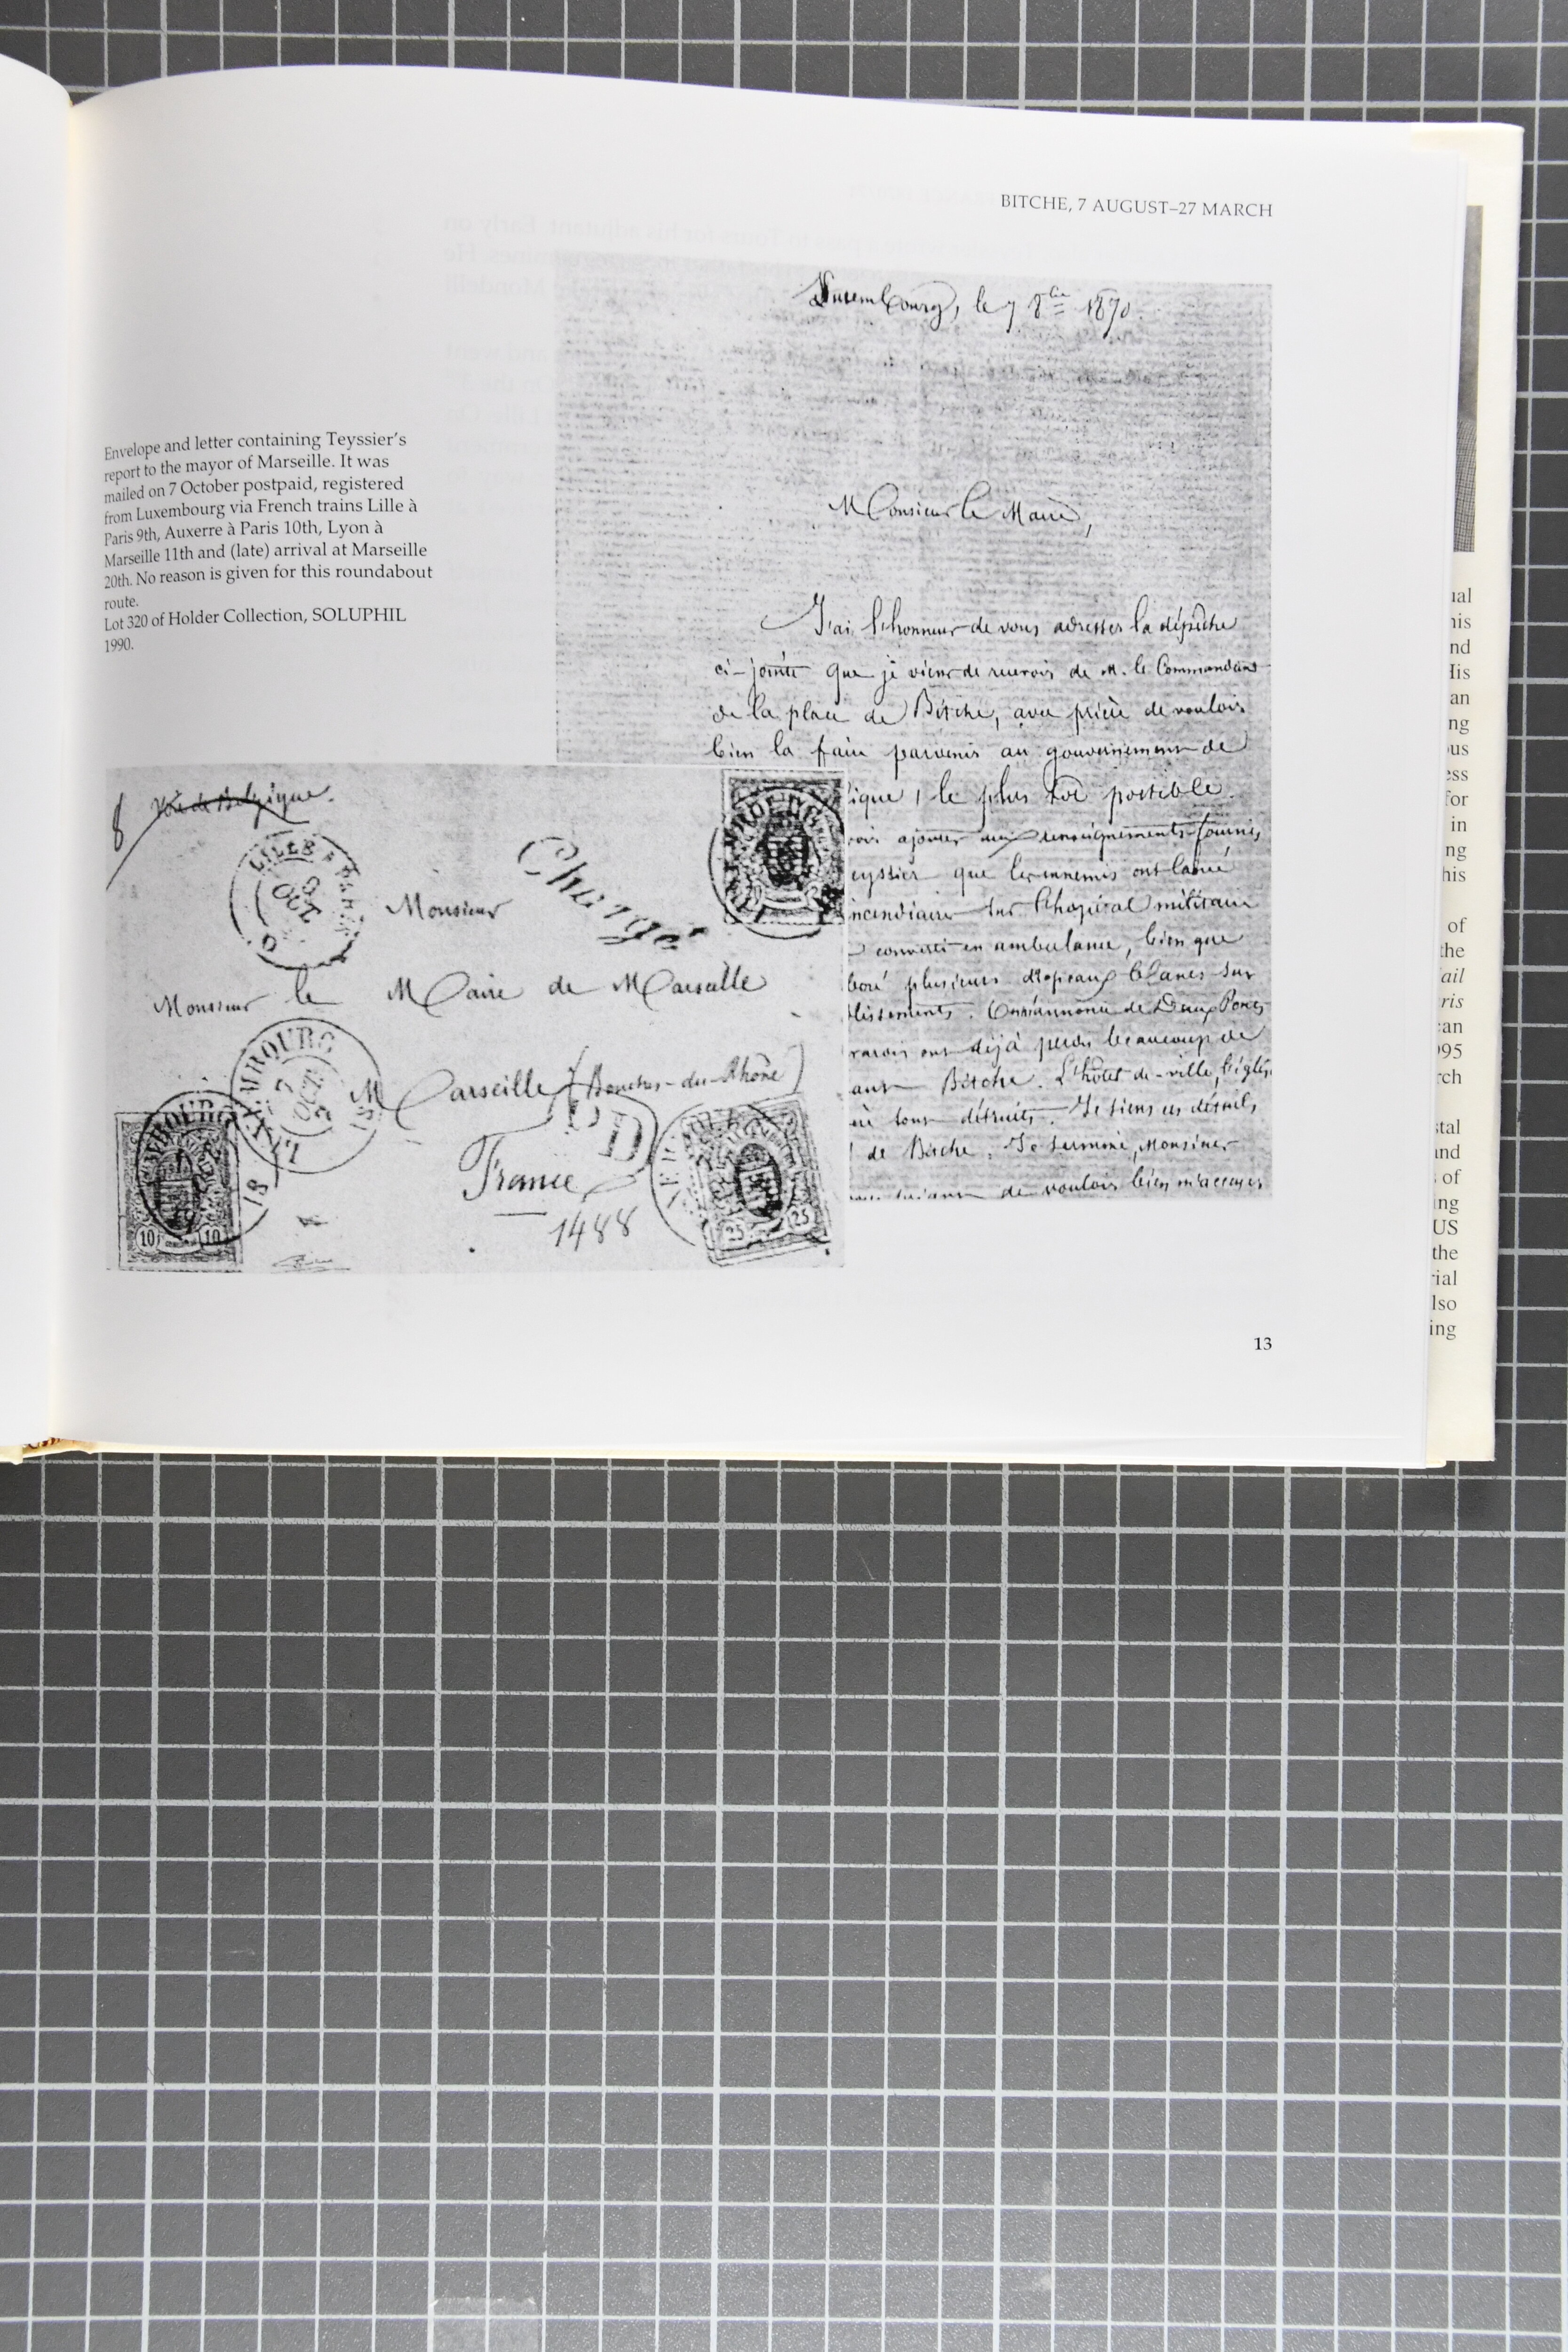 BITCHE, 7 AUGUST–27 MARCH
Envelope and letter containing Teyssier's
report to the mayor of Marseille. It was
mailed on 7 October postpaid, registered
from Luxembourg via French trains Lille à
Paris 9th, Auxerre à Paris 10th, Lyon à
Marseille 11th and (late) arrival at Marseille
20th. No reason is given for this roundabout
route.
Lot 320 of Holder Collection, SOLUPHIL
1990.
Luxembourg, le 7 8bre 1870.
Monsieur le Maire,
J'ai l'honneur de vous adresser la dépêche
ci-jointe que je viens de recevoir de M. le Commandant
de la place de Bitche, avec prière de vouloir
bien la faire parvenir au gouvernement de
ique, le plus tôt possible.
oir ajouter aux renseignements fournis
eyssier que les ennemis ont lancé
incendiaires sur l'hopital militaire
converti en ambulance, bien que
boré plusieurs drapeaux blancs sur
blissements. On m'annonce de Deux Ponts
varois ont déjà perdu beaucoup de
ant Bitche. L'hôtel-de-ville, l'église
sont détruits. Je tiens ces détails
de Bitche. Je termine, Monsieur
de vouloir bien m'accuser
8 Voie de Belgique.
LILLE A PARIS
9
OCT
Chargé
Monsieur
Monsieur le Maire de Marseille
LUXEMBOURG
7
OCT
Marseille (Bouches-du-Rhône)
PD
France
1488
LUXEMBOURG
10 10
25 25
13
ual
his
nd
His
an
ng
ous
ess
for
in
ng
his
of
the
ail
ris
an
995
rch
stal
and
of
ing
US
the
rial
lso
ing